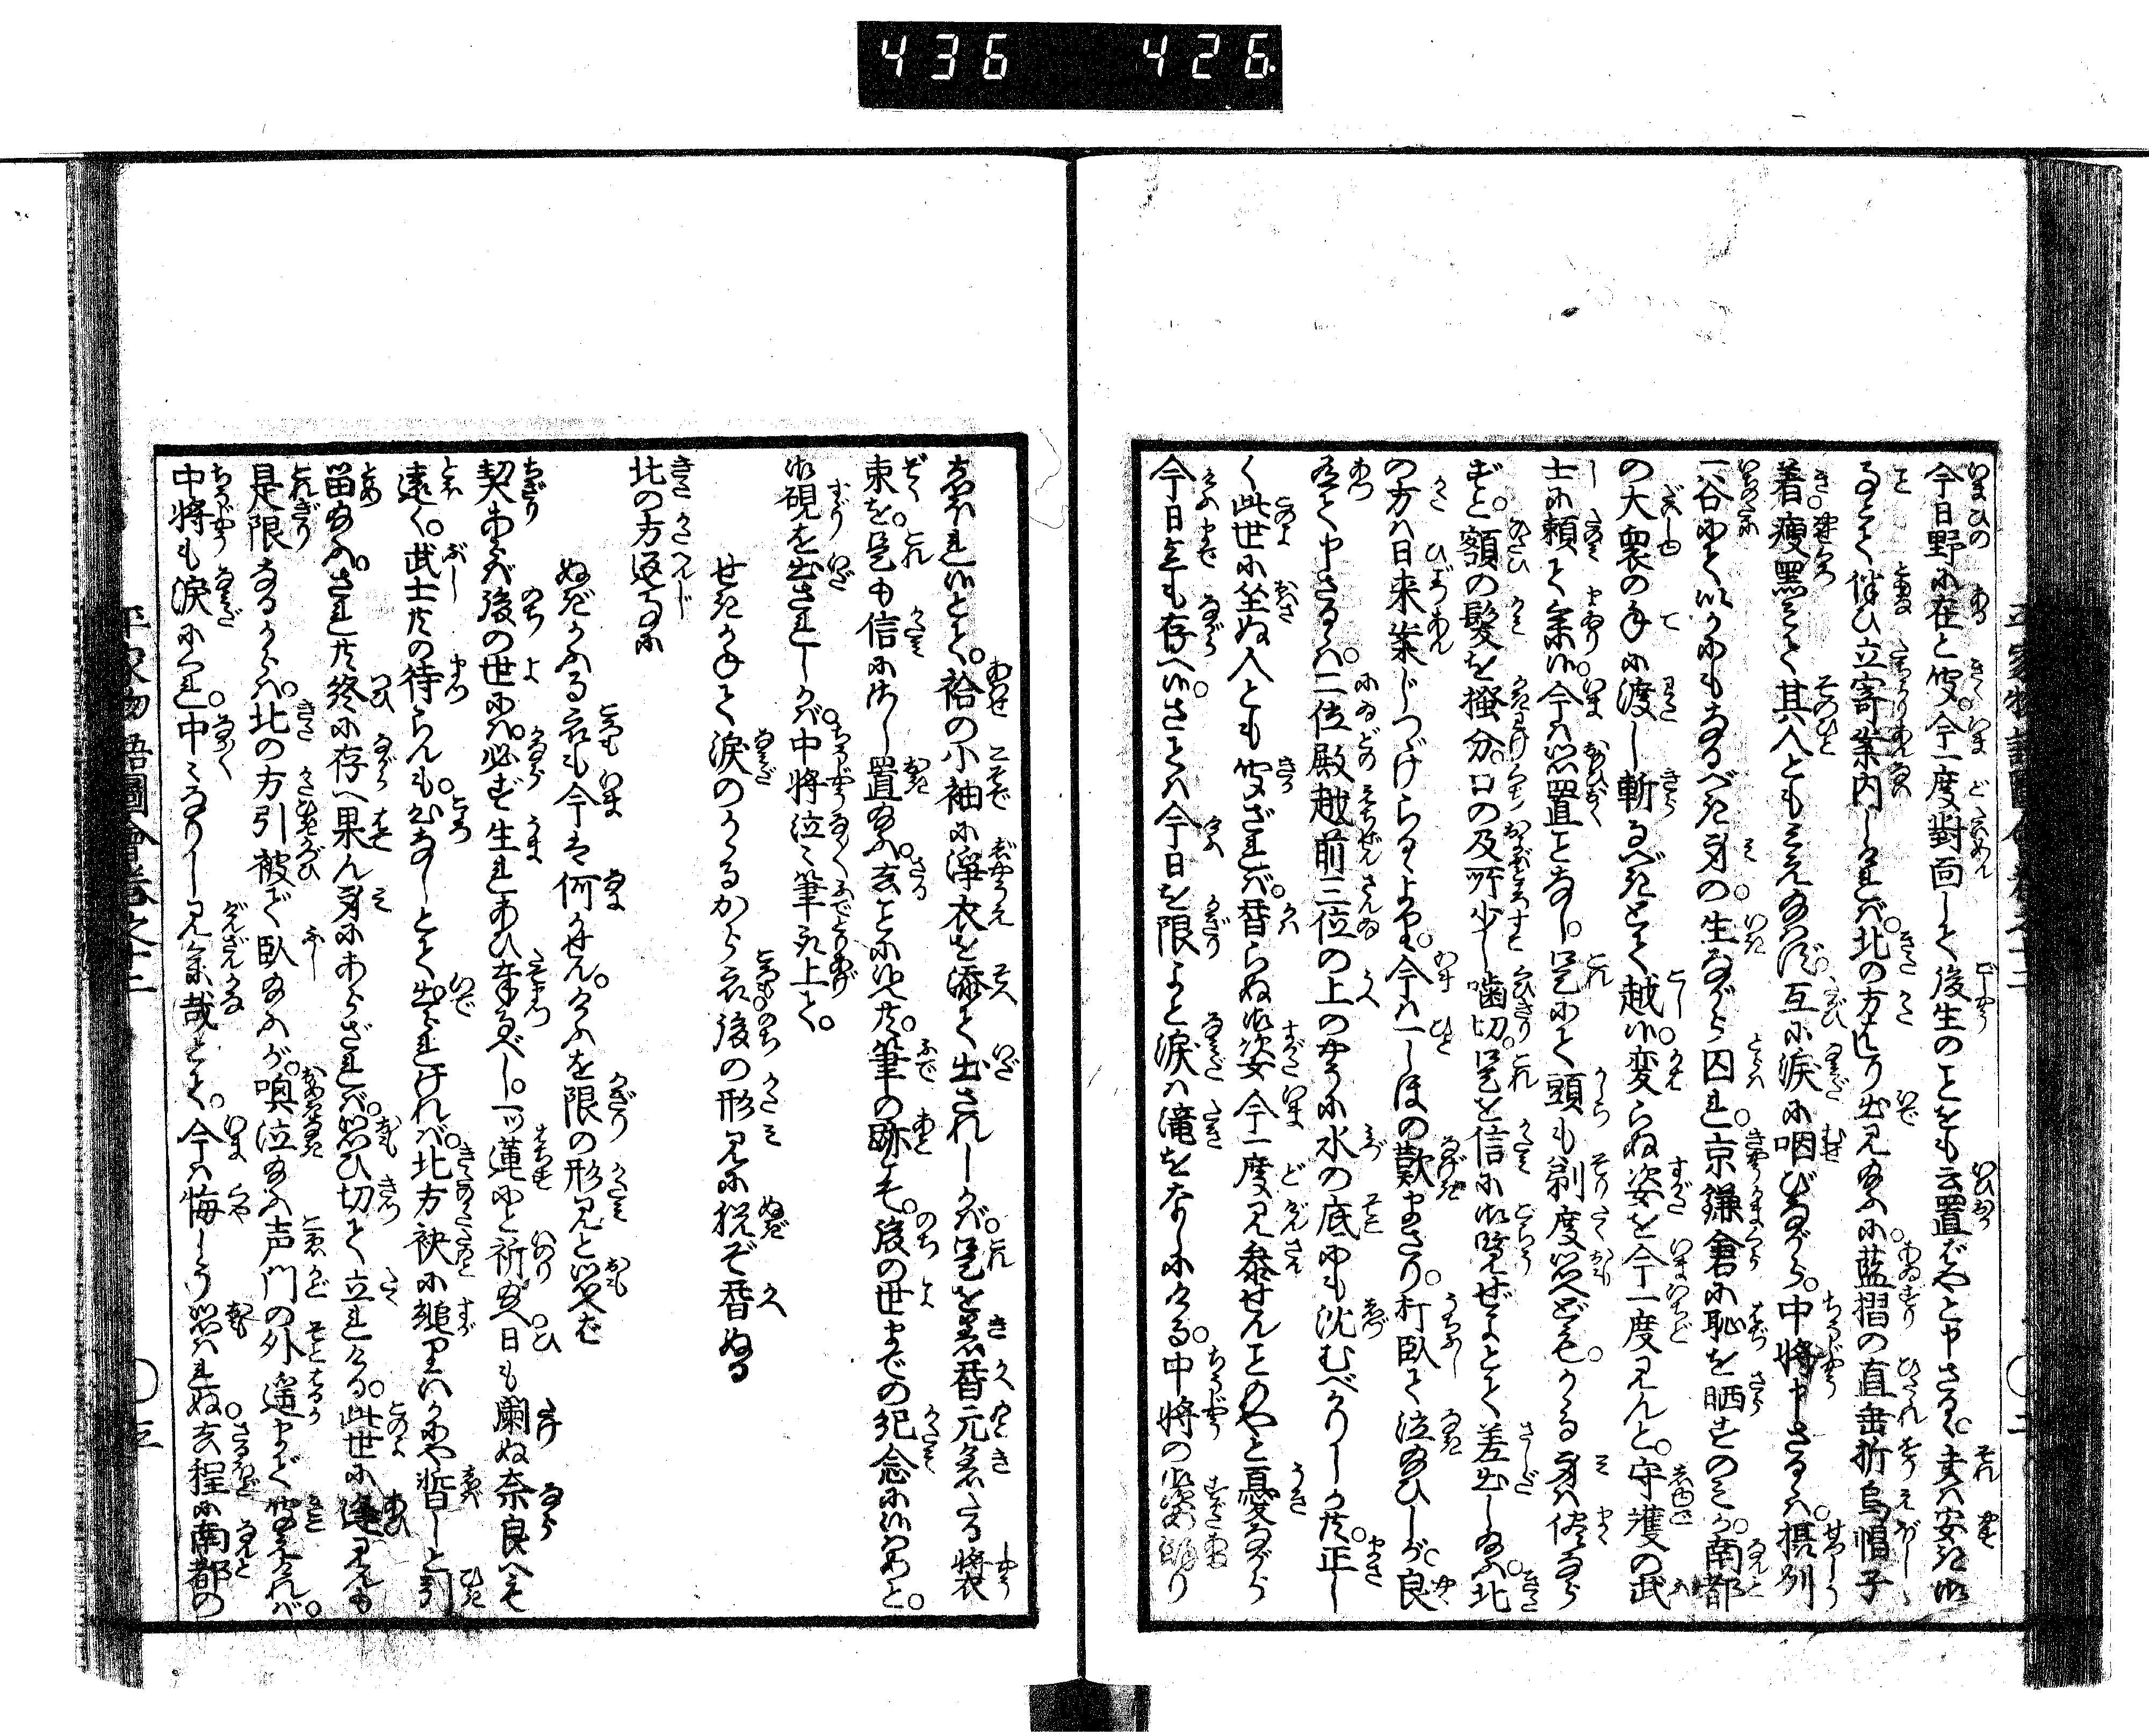 436 426
今日野に在と聞。今一度対面して後生のことをも云置ばやと申さるゝ。夫は安き御
ことゝて伴ひ立寄案内しければ。北の方走り出見給ふに藍摺の直垂折烏帽子
着。痩黒みて其人とも見え給はず。互に涙に咽びながら。中将申さるゝは。摂州
一谷にていかにもなるべき身の。生ながら囚れ。京鎌倉に恥を晒すのみか。南都
の大衆の手に渡し斬るべきとて越い。変らぬ姿を今一度見んと。守護の武
士に頼て参い。今は思置ことなし。是にて頭も剃度思へども。かゝる身は侭なら
ずと。額の髪を掻分。口の及所少し噛切。是を信に御覧ぜよとて差出し給ふ。北
の方は日来案じつゞけらるゝよりも。今は一しほの歎まさり。打臥て泣給ひしが。良
有て申さるゝは。二位殿越前三位の上のやうに水の底にも沈むべかりしか共。正し
く此世に坐ぬ人とも聞ざれば。替らぬ御姿今一度見参せんことのやと憂ながら
今日迄も存へい。さては今日を限よと涙は滝をなしにける。中将の御姿余り
しほれいとて。袷の小袖に浄衣を添て出されしかば。是を着替元着たる装
束を。是も信に御し置給ふ。さることにいへ共。筆の跡こそ。後の世までの紀念にいはめと。
御硯を出されしかば。中将泣〻筆取上て。
せきかねて涙のかゝるから衣後の形見に脱ぞ替ぬる
北の方返事に
ぬぎかふる衣も今は何かせん。けふを限の形見と思へば
契あらば後の世には。必ず生れあひ奉るべし。一ツ蓮にと祈給へ日も闌ぬ奈良へも
遠く。武士共の待らんも。心なしとて出られければ。北方袂に縋りいかにや暫しと引
留給ふ。されど共終に存へ果ん身にあらざれば。思ひ切て立れける。此世に逢見んも
是限なるかは。北の方引被ぎ臥給ふが。喚泣給ふ声門の外遥まで聞えければ。
中将も涙にくれ。中〻なりし見参哉とて。今は悔しうぞ思はれぬ。去程に南都の
平家物語図会巻之十二 〇三